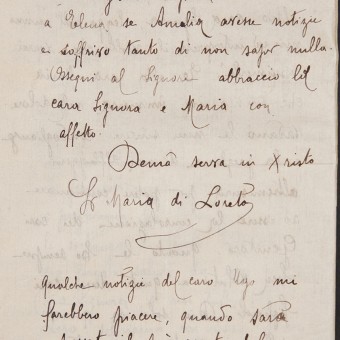 a Elena se Amalia avesse notizie
e soffrivo tanto di non saper nulla.
Ossequi al Signore abbraccio lei
cara Signora e Maria con
affetto.
Devma serva in Xristo
Sr Maria di Loreto
Qualche notizie del caro Ugo mi
farebbero piacere, quando sarà